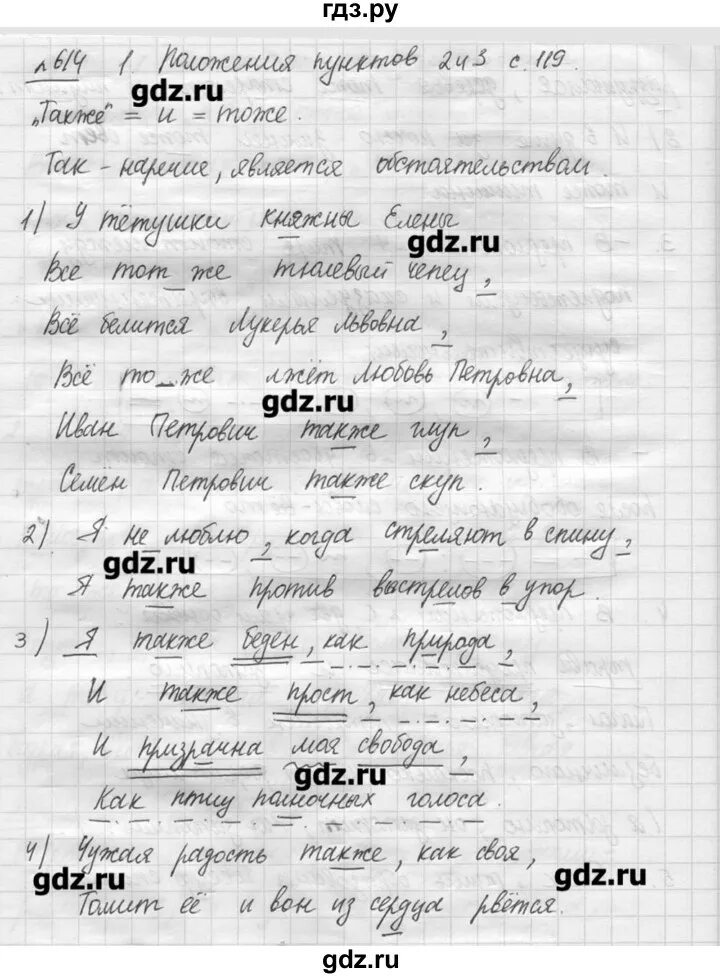 гдз.ру
№614 1. Положения пунктов 2и3 с. 119.
gdz.ru
„Также" = и = тоже.
Так - наречие, является обстоятельством.
1) У тётушки княжны Елены
gdz.ru
Все тот же тюлевый чепец,
Всё белится Лукерья Львовна,
Всё то же лжёт Любовь Петровна,
gdz.ru
Иван Петрович также глуп,
Семён Петрович также скуп.
2) Я не люблю, когда стреляют в спину,
gdz.ru
Я также против выстрелов в упор.
3) Я также беден, как природа,
И также прост, как небеса,
И призрачна моя свобода,
gdz.ru
Как птиц полночных голоса.
4) Чужая радость также, как своя,
gdz.ru gdz.ru
Томит её и вон из сердца рвётся.
gdz.ru